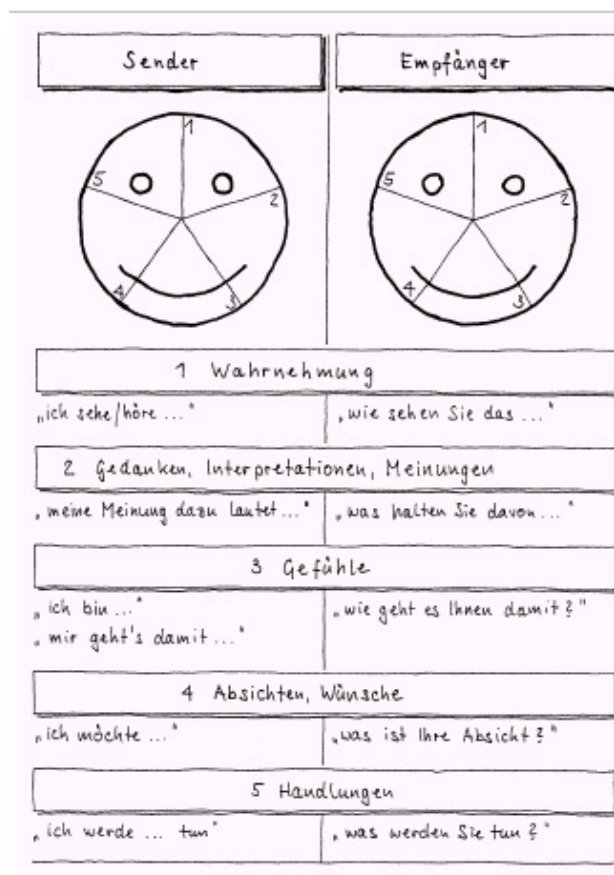 Sender
Empfänger
1
2
3
4
5
1
2
3
4
5
1 Wahrnehmung
„ich sehe/höre ..."
„wie sehen Sie das ..."
2 Gedanken, Interpretationen, Meinungen
„meine Meinung dazu lautet ..."
„was halten Sie davon ..."
3 Gefühle
„ich bin ..."
„mir geht's damit ..."
„wie geht es Ihnen damit?"
4 Absichten, Wünsche
„ich möchte ..."
„was ist Ihre Absicht?"
5 Handlungen
„ich werde ... tun"
„was werden Sie tun?"